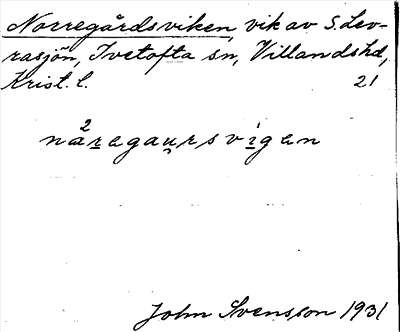 Norregårdsviken, vik av S. Lev-
rasjön, Ivetofta sn, Villandshd,
Krist. l. 21
2
nåregaursvigen
John Svensson 1931